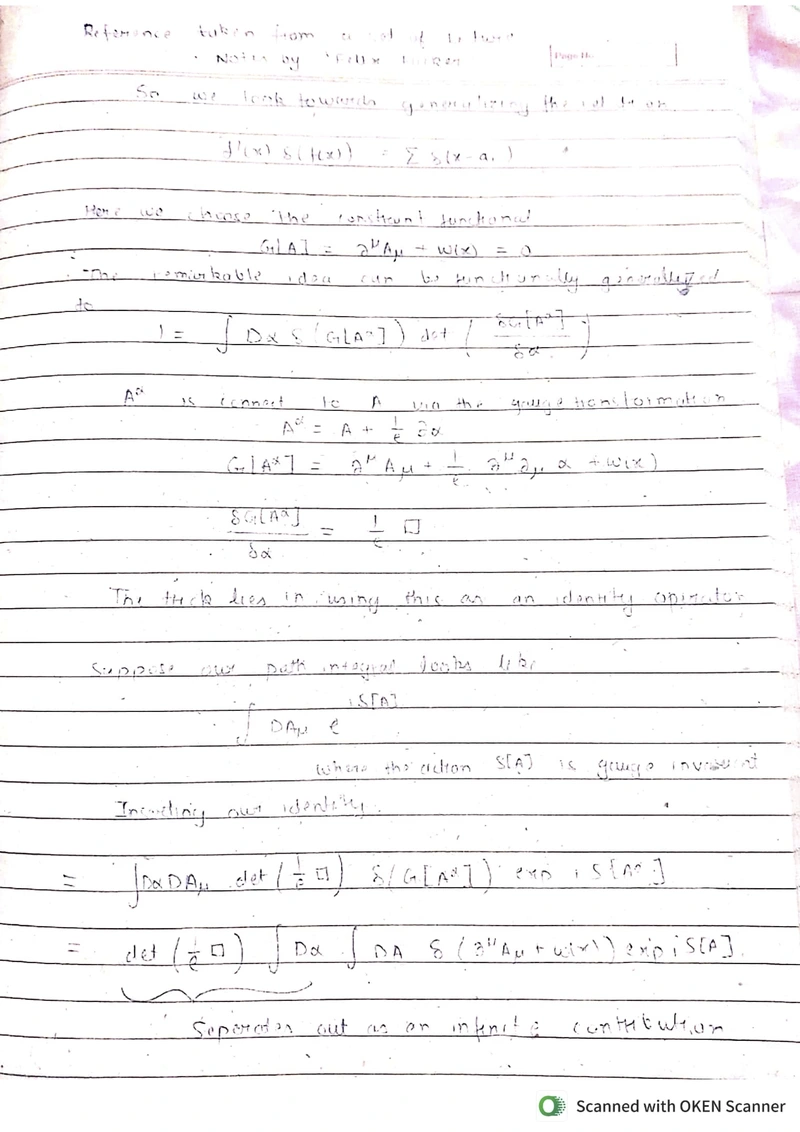 Reference taken from a set of
Notes by Felix
Page No.
So we look towards generalizing the
f'(x) δ(f(x)) = Σ δ(x-aᵢ)
Here we choose the constraint functional
G[A] = ∂^μ A_μ + w(x) = 0
The remarkable idea can be functionally generalized
to
1 = ∫ Dα δ(G[A^α]) det (δG[A^α]/δα)
A^α is connect to A via the gauge transformation
A^α = A + 1/e ∂α
G[A^α] = ∂^μ A_μ + 1/e ∂^μ ∂_μ α + w(x)
δG[A^α]/δα = 1/e □
The trick lies in using this as an identity operator
Suppose our path integral looks like
∫ DA_μ e^{iS[A]}
where the action S[A] is gauge invariant
our identity.
= ∫ Dα DA_μ det (1/e □) δ(G[A^α]) exp i S[A^α]
= det (1/e □) ∫ Dα ∫ DA δ (∂^μ A_μ + w(x)) exp i S[A]
Seperates out as an infinite contribution
Scanned with OKEN Scanner